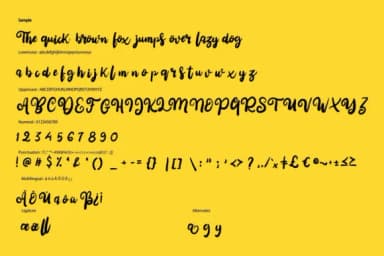 Sample
The quick brown fox jumps over lazy dog
Lowercase: abcdefghijklmnopqrstuvwxyz
a b c d e f g h i j k l m n o p q r s t u v w x y z
Uppercase: ABCDEFGHIJKLMNOPQRSTUVWXYZ
A B C D E F G H I J K L M N O P Q R S T U V W X Y Z
Numeral: 0123456789
1 2 3 4 5 6 7 8 9 0
Punctuation:
! @ # $ %
( ) _ + - = { } | [ ] \ : " ; ' < > ? , . /
Multilingual:
Ligature
Alternates
g y